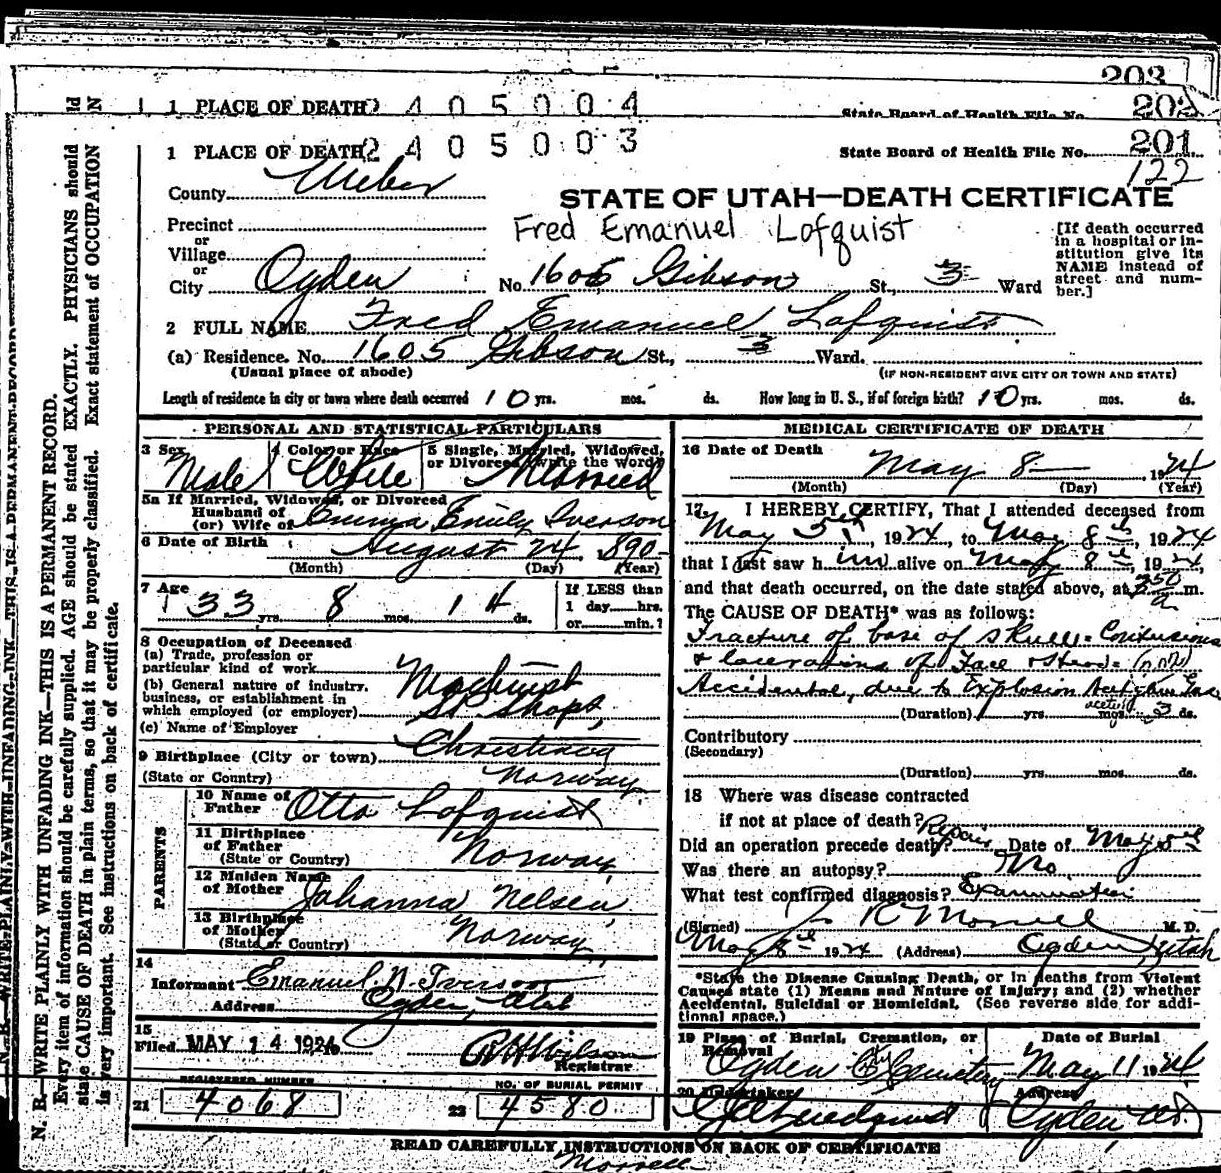 203
1 PLACE OF DEATH 2405004 State Board of Health File No. 202
1 PLACE OF DEATH 2405003 State Board of Health File No. 201
122
County Weber
STATE OF UTAH—DEATH CERTIFICATE
Precinct
or
Village
or
City Ogden No. 1605 Gibson St., 3 Ward
Fred Emanuel Lofquist
[If death occurred
in a hospital or in-
stitution give its
NAME instead of
street and num-
ber.]
2 FULL NAME Fred Emanuel Lofquist
(a) Residence. No. 1605 Gibson St., 3 Ward.
(Usual place of abode) (IF NON-RESIDENT GIVE CITY OR TOWN AND STATE)
Length of residence in city or town where death occurred 10 yrs. mos. ds. How long in U. S., if of foreign birth? 10 yrs. mos. ds.
PERSONAL AND STATISTICAL PARTICULARS
3 Sex Male
4 Color or Race White
5 Single, Married, Widowed,
or Divorced (write the word) Married
5a If Married, Widowed, or Divorced
Husband of
(or) Wife of Emma Emily Iverson
6 Date of Birth August 24 1890
(Month) (Day) (Year)
7 Age 33 yrs. 8 mos. 14 ds.
If LESS than
1 day......hrs.
or......min.?
8 Occupation of Deceased
(a) Trade, profession or
particular kind of work Machinist
(b) General nature of industry,
business, or establishment in
which employed (or employer) SP Shops
(c) Name of Employer
9 Birthplace (City or town) Christiania
(State or Country) Norway
PARENTS
10 Name of
Father Otto Lofquist
11 Birthplace
of Father
(State or Country) Norway
12 Maiden Name
of Mother Johanna Nelsen
13 Birthplace
of Mother
(State or Country) Norway
14
Informant Emanuel N. Iverson
Address Ogden, Utah
15
Filed MAY 14 1924 Wilson
Registrar
REGISTERED NUMBER
21 4068
NO. OF BURIAL PERMIT
22 4580
MEDICAL CERTIFICATE OF DEATH
16 Date of Death May 8 1924
(Month) (Day) (Year)
17 I HEREBY CERTIFY, That I attended deceased from
May 5th, 1924, to May 8th, 1924
that I last saw him alive on May 8th, 1924,
and that death occurred, on the date stated above, at 350 a m.
The CAUSE OF DEATH* was as follows:
Fracture of base of skull - Contusions
& lacerations of Face & Head -
Accidental, due to Explosion
(Duration) yrs. mos. 3 ds.
Contributory
(Secondary)
(Duration) yrs. mos. ds.
18 Where was disease contracted
if not at place of death?
Did an operation precede death? Repair Date of May 5th
Was there an autopsy? No
What test confirmed diagnosis? Examination
(Signed) R Morrell M. D.
May 8th 1924 (Address) Ogden, Utah
*State the Disease Causing Death, or in deaths from Violent
Causes state (1) Means and Nature of Injury; and (2) whether
Accidental, Suicidal or Homicidal. (See reverse side for addi-
tional space.)
19 Place of Burial, Cremation, or
Removal Ogden City Cemetery
Date of Burial
May 11 1924
20 Undertaker
Address
Ogden Ut.
READ CAREFULLY INSTRUCTIONS ON BACK OF CERTIFICATE
Morrell
N. B.—WRITE PLAINLY WITH UNFADING INK—THIS IS A PERMANENT RECORD.
Every item of information should be carefully supplied. AGE should be stated EXACTLY. PHYSICIANS should
state CAUSE OF DEATH in plain terms, so that it may be properly classified. Exact statement of OCCUPATION
is very important. See instructions on back of certificate.